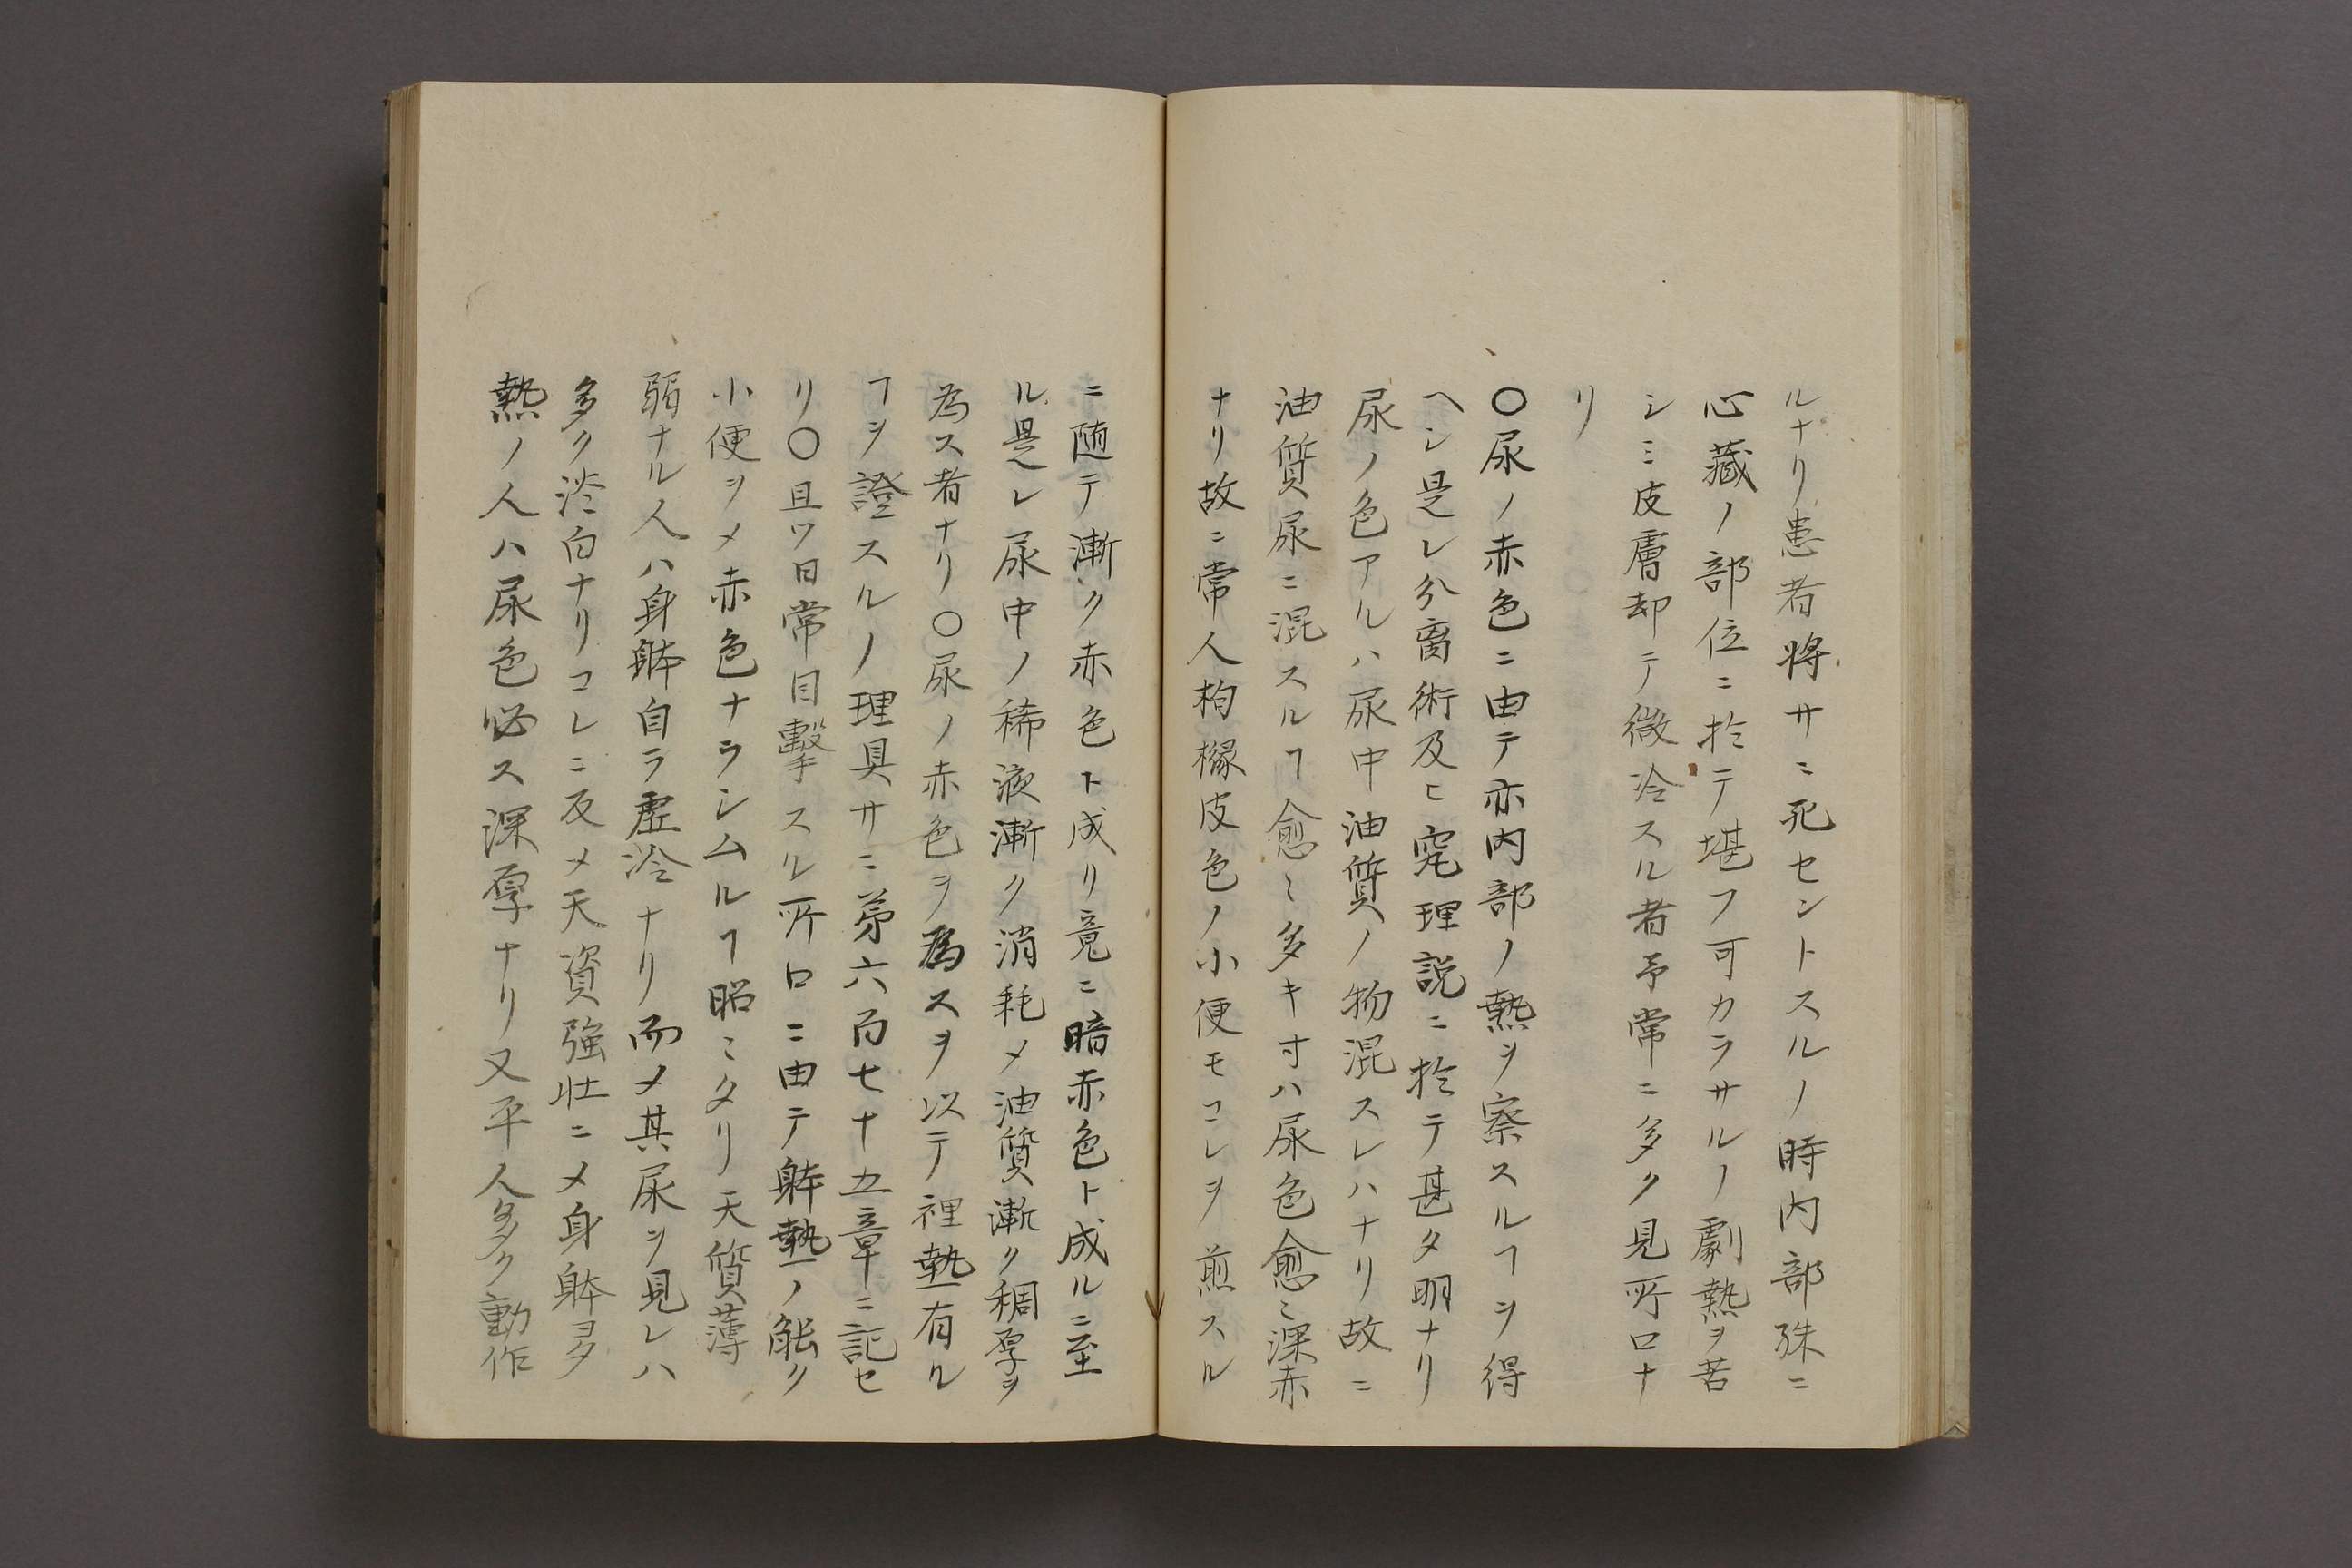 ルナリ患者将サニ死セントスルノ時内部殊ニ
心藏ノ部位ニ於テ堪フ可カラサルノ劇熱ヲ苦
シミ皮膚却テ微冷スル者予常ニ多ク見所ロナ
リ
〇尿ノ赤色ニ由テ亦内部ノ熱ヲ察スルヿヲ得
ヘシ是レ分离術及ヒ究理説ニ於テ甚タ明ナリ
尿ノ色アルハ尿中油質ノ物混スレハナリ故ニ
油質尿ニ混スルヿ愈〻多キ寸ハ尿色愈〻深赤
ナリ故ニ常人枸櫞皮色ノ小便モコレヲ煎スル
ニ随テ漸ク赤色ト成リ竟ニ暗赤色ト成ルニ至
ル是レ尿中ノ稀液漸ク消耗メ油質漸ク稠厚ヲ
為ス者ナリ〇尿ノ赤色ヲ為スヲ以テ裡熱有ル
ヿヲ證スルノ理具サニ第六百七十五章ニ記セ
リ〇且ツ日常目擊スル所ロニ由テ躰熱ノ能ク
小便ヲメ赤色ナラシムルヿ昭ミタリ天質薄
弱ナル人ハ身躰自ラ虚冷ナリ而メ其尿ヲ見レハ
多ク淡白ナリコレニ反メ天資強壮ニメ身躰ヨタ
熱ノ人ハ尿色必ス深厚ナリ又平人多ク動作